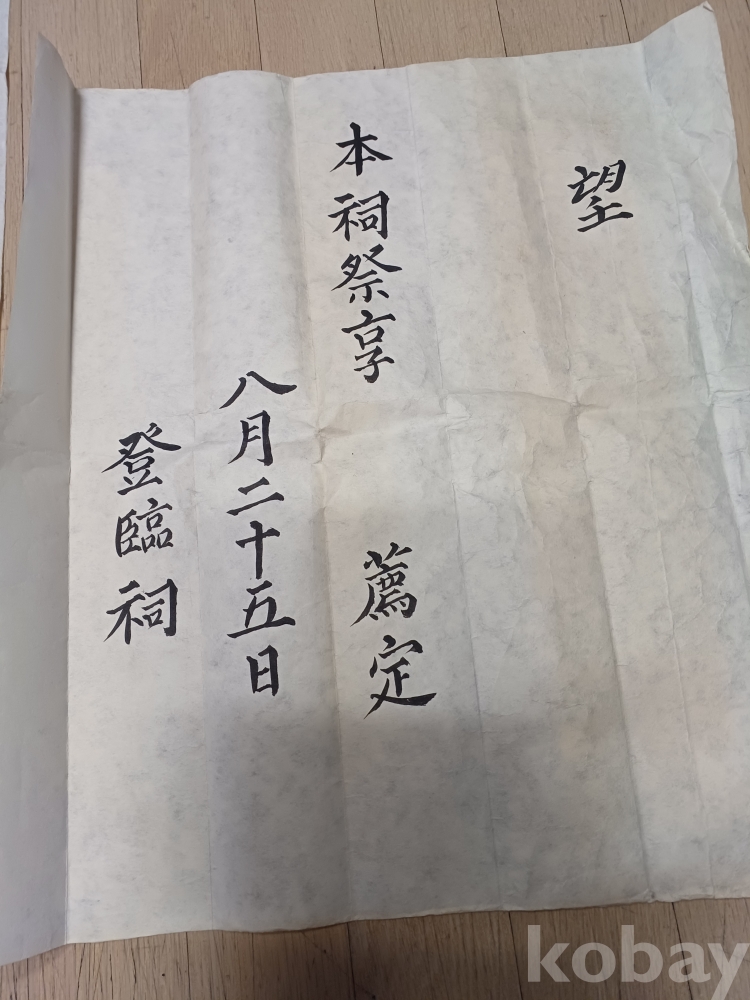 望
本祠祭享 薦定
八月二十五日
登臨祠
kobay